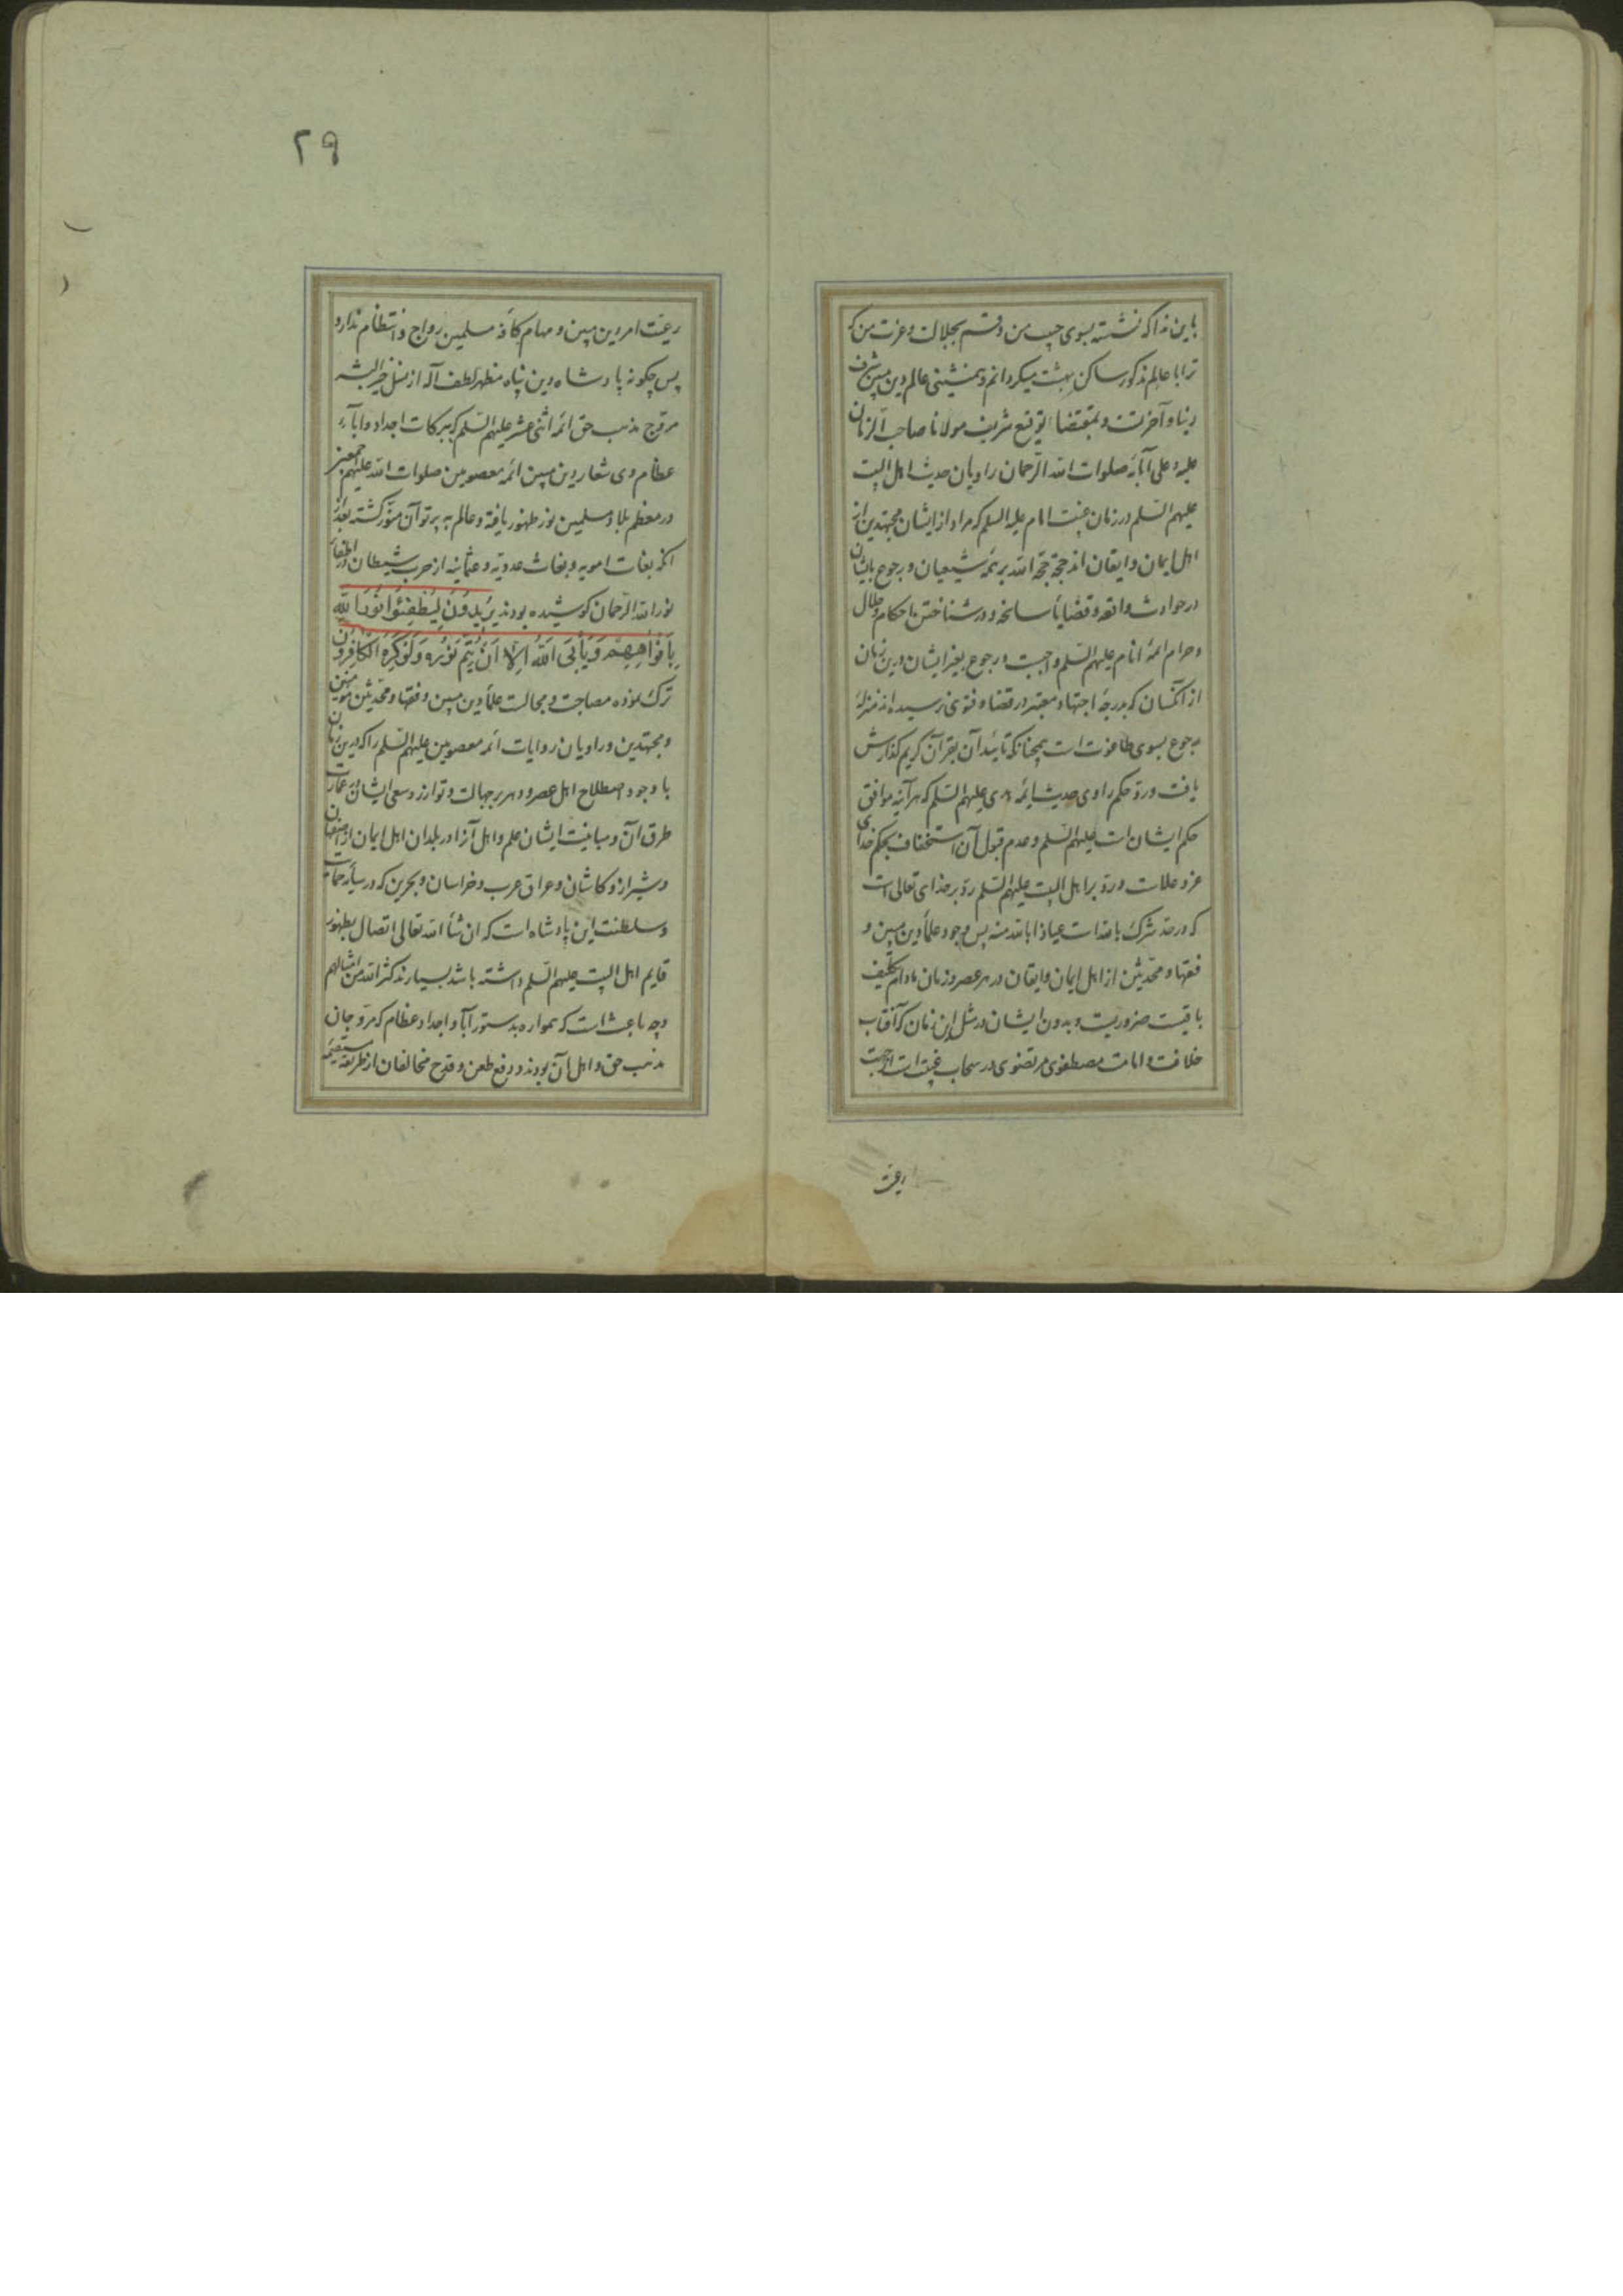 باین ندا که نشسته بسوی حبیب من و قسم بجلالت و عزت من که
ترا با عالم مذکور ساکن بهشت میکردانم و همنشینی عالم دین مبین شرف
دنیا و آخرتست و بمقتضاء توقیع شریف مولانا صاحب الزمان
علیه و علی آبائه صلوات الله الرحمان راویان حدیث اهل البیت
علیهم السلم در زمان غیبت امام علیه السلم که مراد از ایشان مجتهدین از
اهل ایمان و ایقان اند حجت حجة الله بر همه شیعیان و رجوع بایشان
در حوادث واقعه و قضایاء سانحه و در شناختن احکام و حلال
و حرام ائمه انام علیهم السلم واجبست و رجوع بغیر ایشان درین زمان
از آنکسان که بدرجه اجتهاد معتبر در قضا و فتوی نرسیده اند منزله
رجوع بسوی طاغوت است همچنانکه تائید آن بقرآن کریم کذارش
یافت و رد حکم راوی حدیث ائمه هدی علیهم السلم که هر آینه موافق
حکم ایشان است علیهم السلم و عدم قبول آن استخفاف بحکم خدای
عز و علاست و رد بر اهل البیت علیهم السلم رد بر خدای تعالی است
که در حد شرک بالله است عیاذا بالله منه پس وجود علماء دین مبین و
فقها و محدثین از اهل ایمان و ایقان در هر عصر و زمان مادام تکلیف
باقیست ضروریست و بدون ایشان در مثل این زمان که آفتاب
خلافت و امامت مصطفوی مرتضوی در سحاب غیبت است
رعیت
۲۹
رعیت امر دین مبین و مهام کافه مسلمین رواج و انتظام ندارد
پس چکونه پادشاه دین پناه مظهر لطف آله از نسل خیر البشر
مروج مذهب حق ائمه اثنی عشر علیهم السلم که ببرکات اجداد و اباء
عظام وی شعار دین مبین ائمه معصومین صلوات الله علیهم اجمعین
در معظم بلاد مسلمین نور ظهور یافته و عالم به پرتو آن منور کشته بعد از
آنکه بغات امویه و بغاث عدویه و عثمانیه از حزب شیطان در اطفاء
نور الله الرحمان کوشیده بودند یُریدُونَ لِیُطْفِئُوا نُورَ اللهِ
بِاَفْواهِهِمْ وَیَاْبَی اللهُ اِلّا اَنْ یُتِمَّ نُورَهُ وَلَوْ کَرِهَ الْکافِرُونَ
ترک نموده مصاحبت و مجالست علماء دین مبین و فقها و محدثین مؤمنین
و مجتهدین و راویان روایات ائمه معصومین علیهم السلم را که درین زمان
با وجود اصطلاح اهل عصر و دهر بر جهالت و توازر و سعی ایشان در عمارت
طرق آن و مباینت ایشان علم و اهل آنرا در بلدان اهل ایمان از اصفهان
و شیراز و کاشان و عراق عرب و خراسان و بحرین که در سایه حمایت
و سلطنت این پادشاه است که ان شاء الله تعالی اتصال بظهور
قایم اهل البیت علیهم السلم داشته باشد بسیارند کثر الله من امثالهم
و چه باعث است که همواره بدستور آبا و اجداد عظام که مروجان
مذهب حق و اهل آن بودند در رفع طعن و قدح مخالفان از طریقه مستقیمه